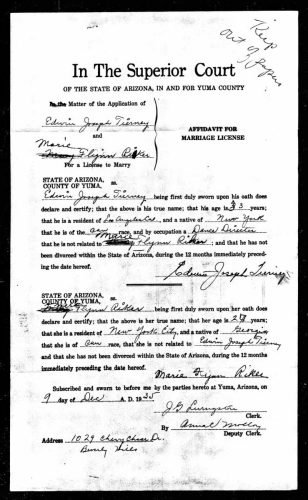 Keep
out of
Papers
In The Superior Court
OF THE STATE OF ARIZONA, IN AND FOR YUMA COUNTY
In the Matter of the Application of
Edwin Joseph Tierney
and
Marie
Flynn Riker
For a License to Marry
AFFIDAVIT FOR
MARRIAGE LICENSE
STATE OF ARIZONA,
COUNTY OF YUMA, ss.
Edwin Joseph Tierney being first duly sworn upon his oath does
declare and certify; that the above is his true name; that his age is 53 years;
that he is a resident of Los Angeles Ca, and a native of New York
that he is of the race, and by occupation a Dance Director
that he is not related to Marie Flynn Riker; and that he has not
been divorced within the State of Arizona, during the 12 months immediately preced-
ing the date hereof.
Edwin Joseph Tierney
STATE OF ARIZONA,
COUNTY OF YUMA, ss.
Flynn Riker being first duly sworn upon her oath does
declare and certify; that the above is her true name; that her age is years;
that she is a resident of New York City, and a native of Georgia
that she is of race, that she is not related to Edwin Joseph Tierney
and that she has not been divorced within the State of Arizona, during the 12 months
immediately preceding the date hereof.
Marie Flynn Riker
Subscribed and sworn to before me by the parties hereto at Yuma, Arizona, on
9 day of Dec A. D. 1935
J G Livingston
Clerk.
By Anna C Molloy
Deputy Clerk.
Address 1029 Dr.
Beverly Hills